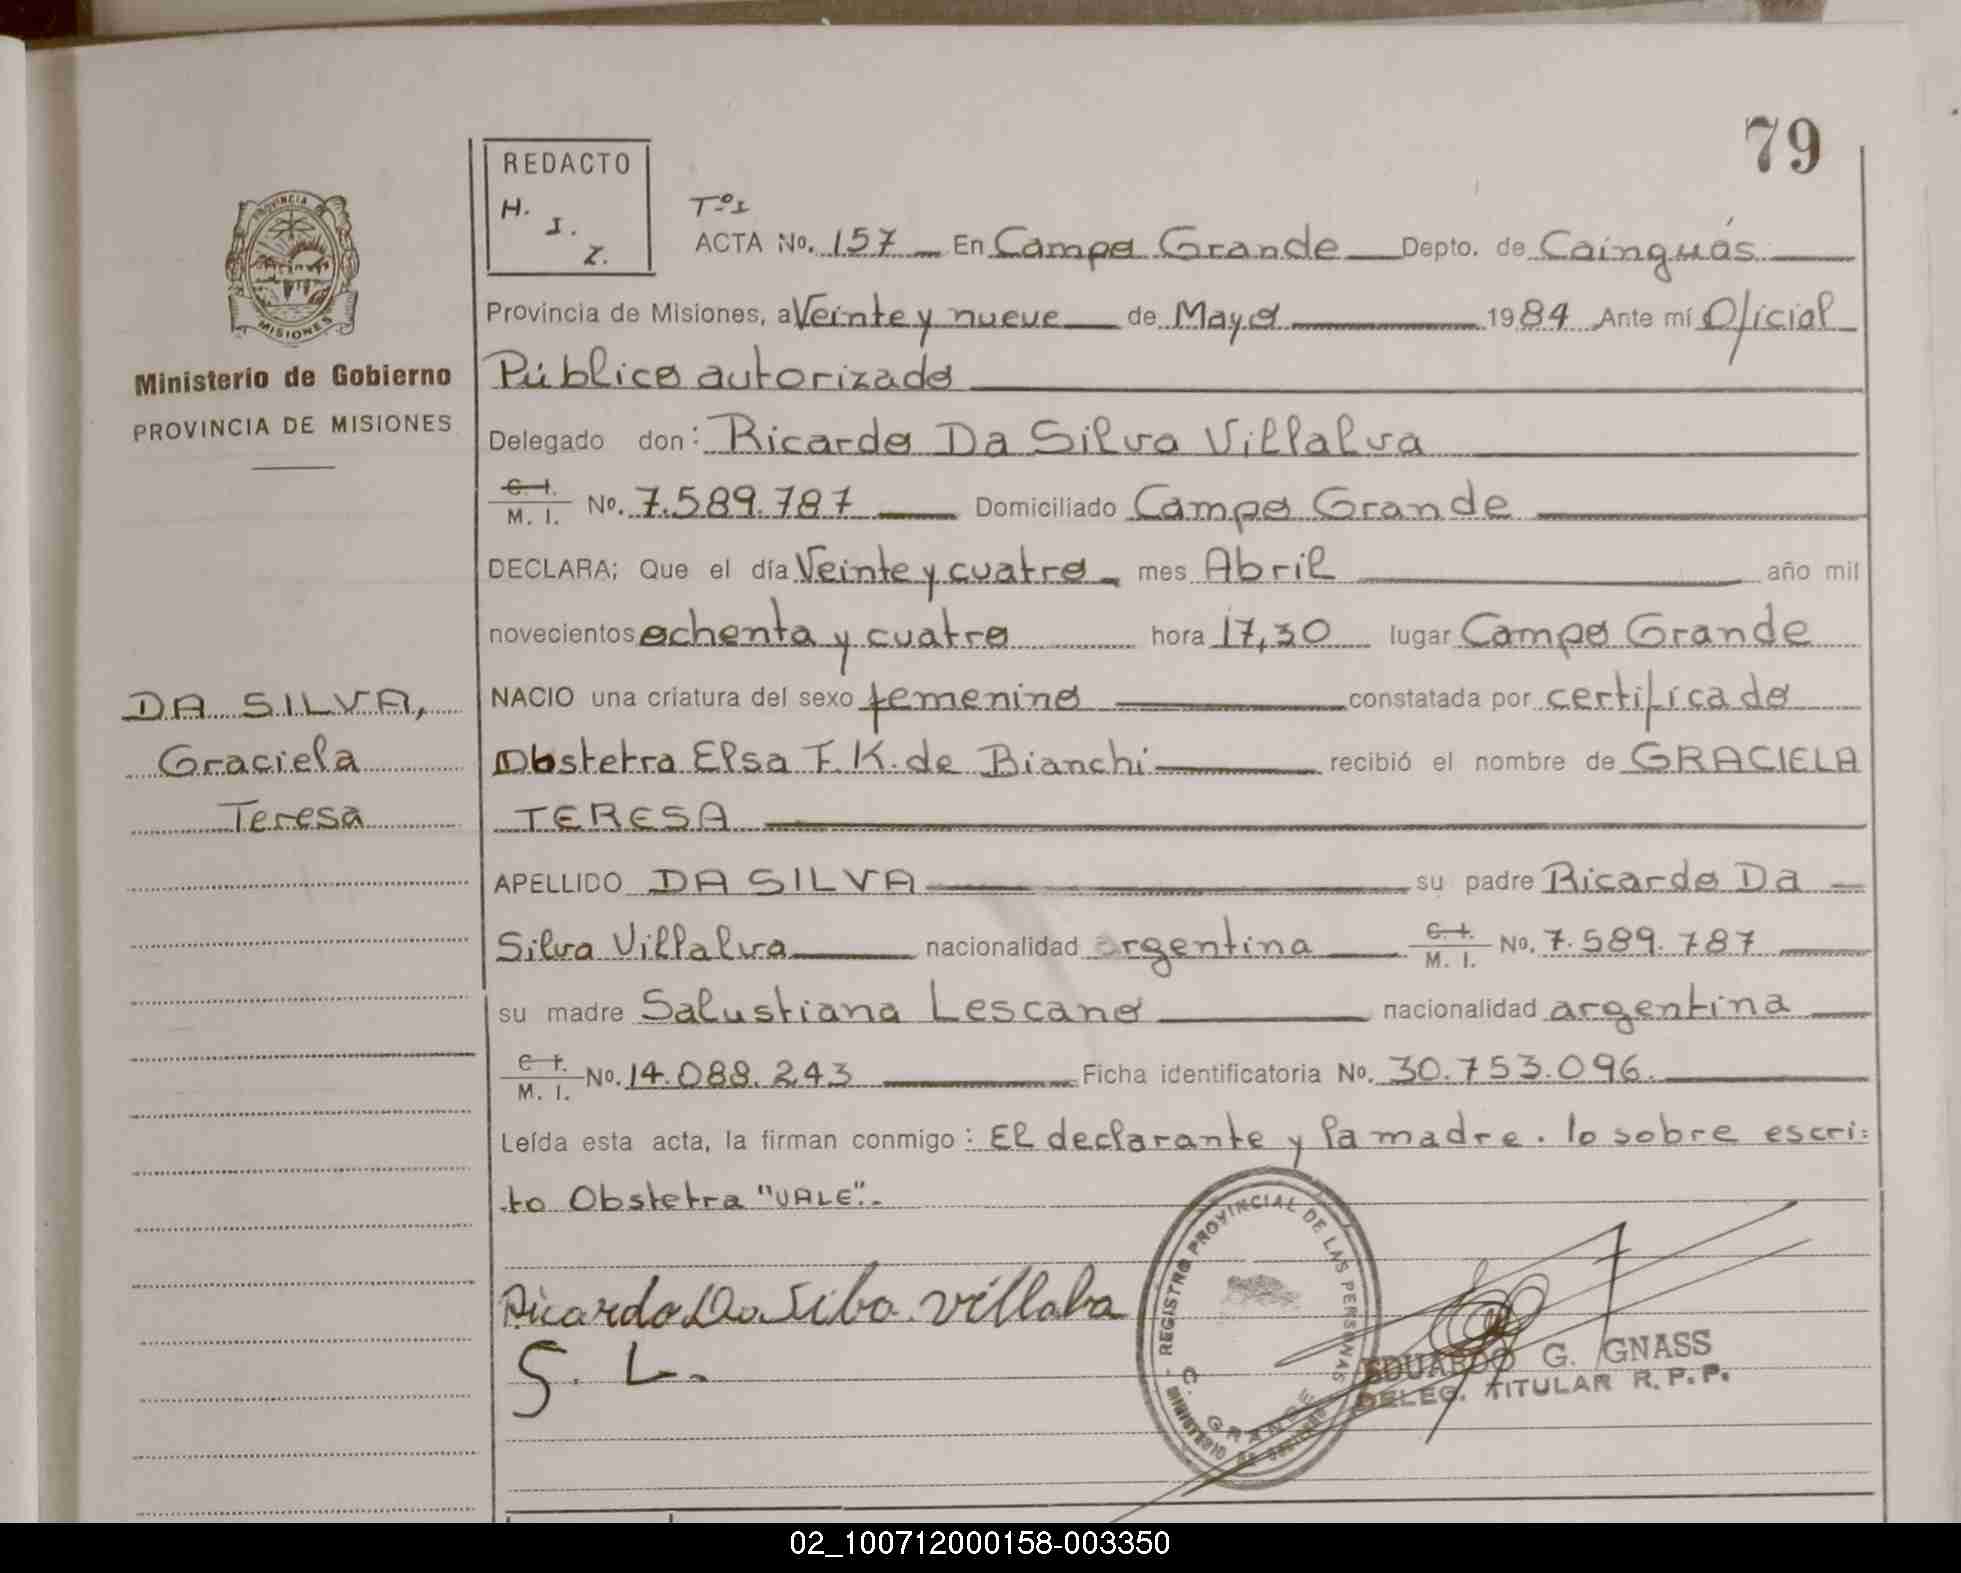 79
REDACTO
H. I. Z.
Tº I
ACTA No. 157 En Campo Grande Depto. de Cainguás
PROVINCIA
MISIONES
Provincia de Misiones, a Veinte y nueve de Mayo 1984 Ante mí Oficial
Ministerio de Gobierno
PROVINCIA DE MISIONES
Público autorizado
Delegado don: Ricardo Da Silva Villalva
C. I.
M. I. No. 7.589.787 Domiciliado Campo Grande
DECLARA; Que el día Veinte y cuatro mes Abril año mil
novecientos ochenta y cuatro hora 17,30 lugar Campo Grande
DA SILVA,
Graciela
Teresa
NACIO una criatura del sexo femenino constatada por certificado
Obstetra Elsa F. K. de Bianchi recibió el nombre de GRACIELA
TERESA
APELLIDO DA SILVA su padre Ricardo Da
Silva Villalva nacionalidad argentina C. I. M. I. No. 7.589.787
su madre Salustiana Lescano nacionalidad argentina
C. I.
M. I. No. 14.088.243 Ficha identificatoria No. 30.753.096.
Leída esta acta, la firman conmigo: El declarante y la madre. lo sobre escri=
to Obstetra "VALE".-
Ricardo Da Silba villalba
S. L.
REGISTRO PROVINCIAL DE LAS PERSONAS
C. GRANDE
MINISTERIO DE GOBIERNO
EDUARDO G. GNASS
DELEG. TITULAR R.P.P.
02_100712000158-003350